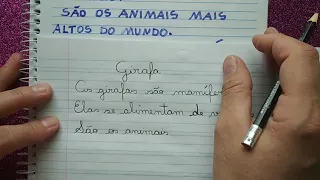 SÃO OS ANIMAIS MAIS
ALTOS DO MUNDO.
Girafa
As girafas são mamífer
Elas se alimentam de v
São os animais